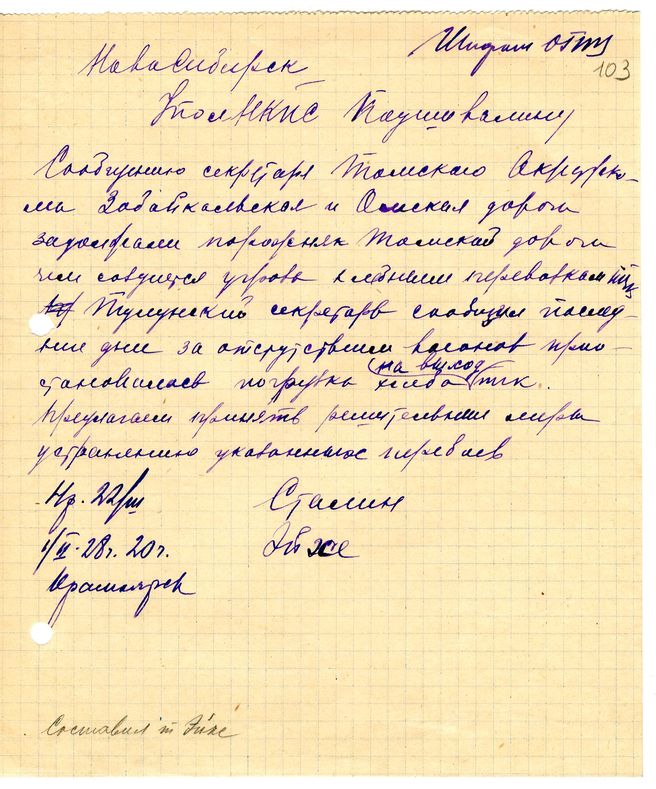 Шифром ОГПУ
103
Новосибирск
УполНКПС Паушвалину
Сообщению секретаря Томского Окружко-
ма Забайкальская и Омская дороги
задолжали порожняк Томской дороге
чем создается угроза хлебным перевозкам тчк
Тулунский секретарь сообщил послед-
ние дни за отсутствием вагонов прио-
на выход
становилась погрузка хлеба тчк.
Предлагаем принять решительные меры
устранению указанных перебоев
Нр. 22/ш
Сталин
1/II-28г. 20г.
Эйхе
Красноярск
Составил т Эйхе